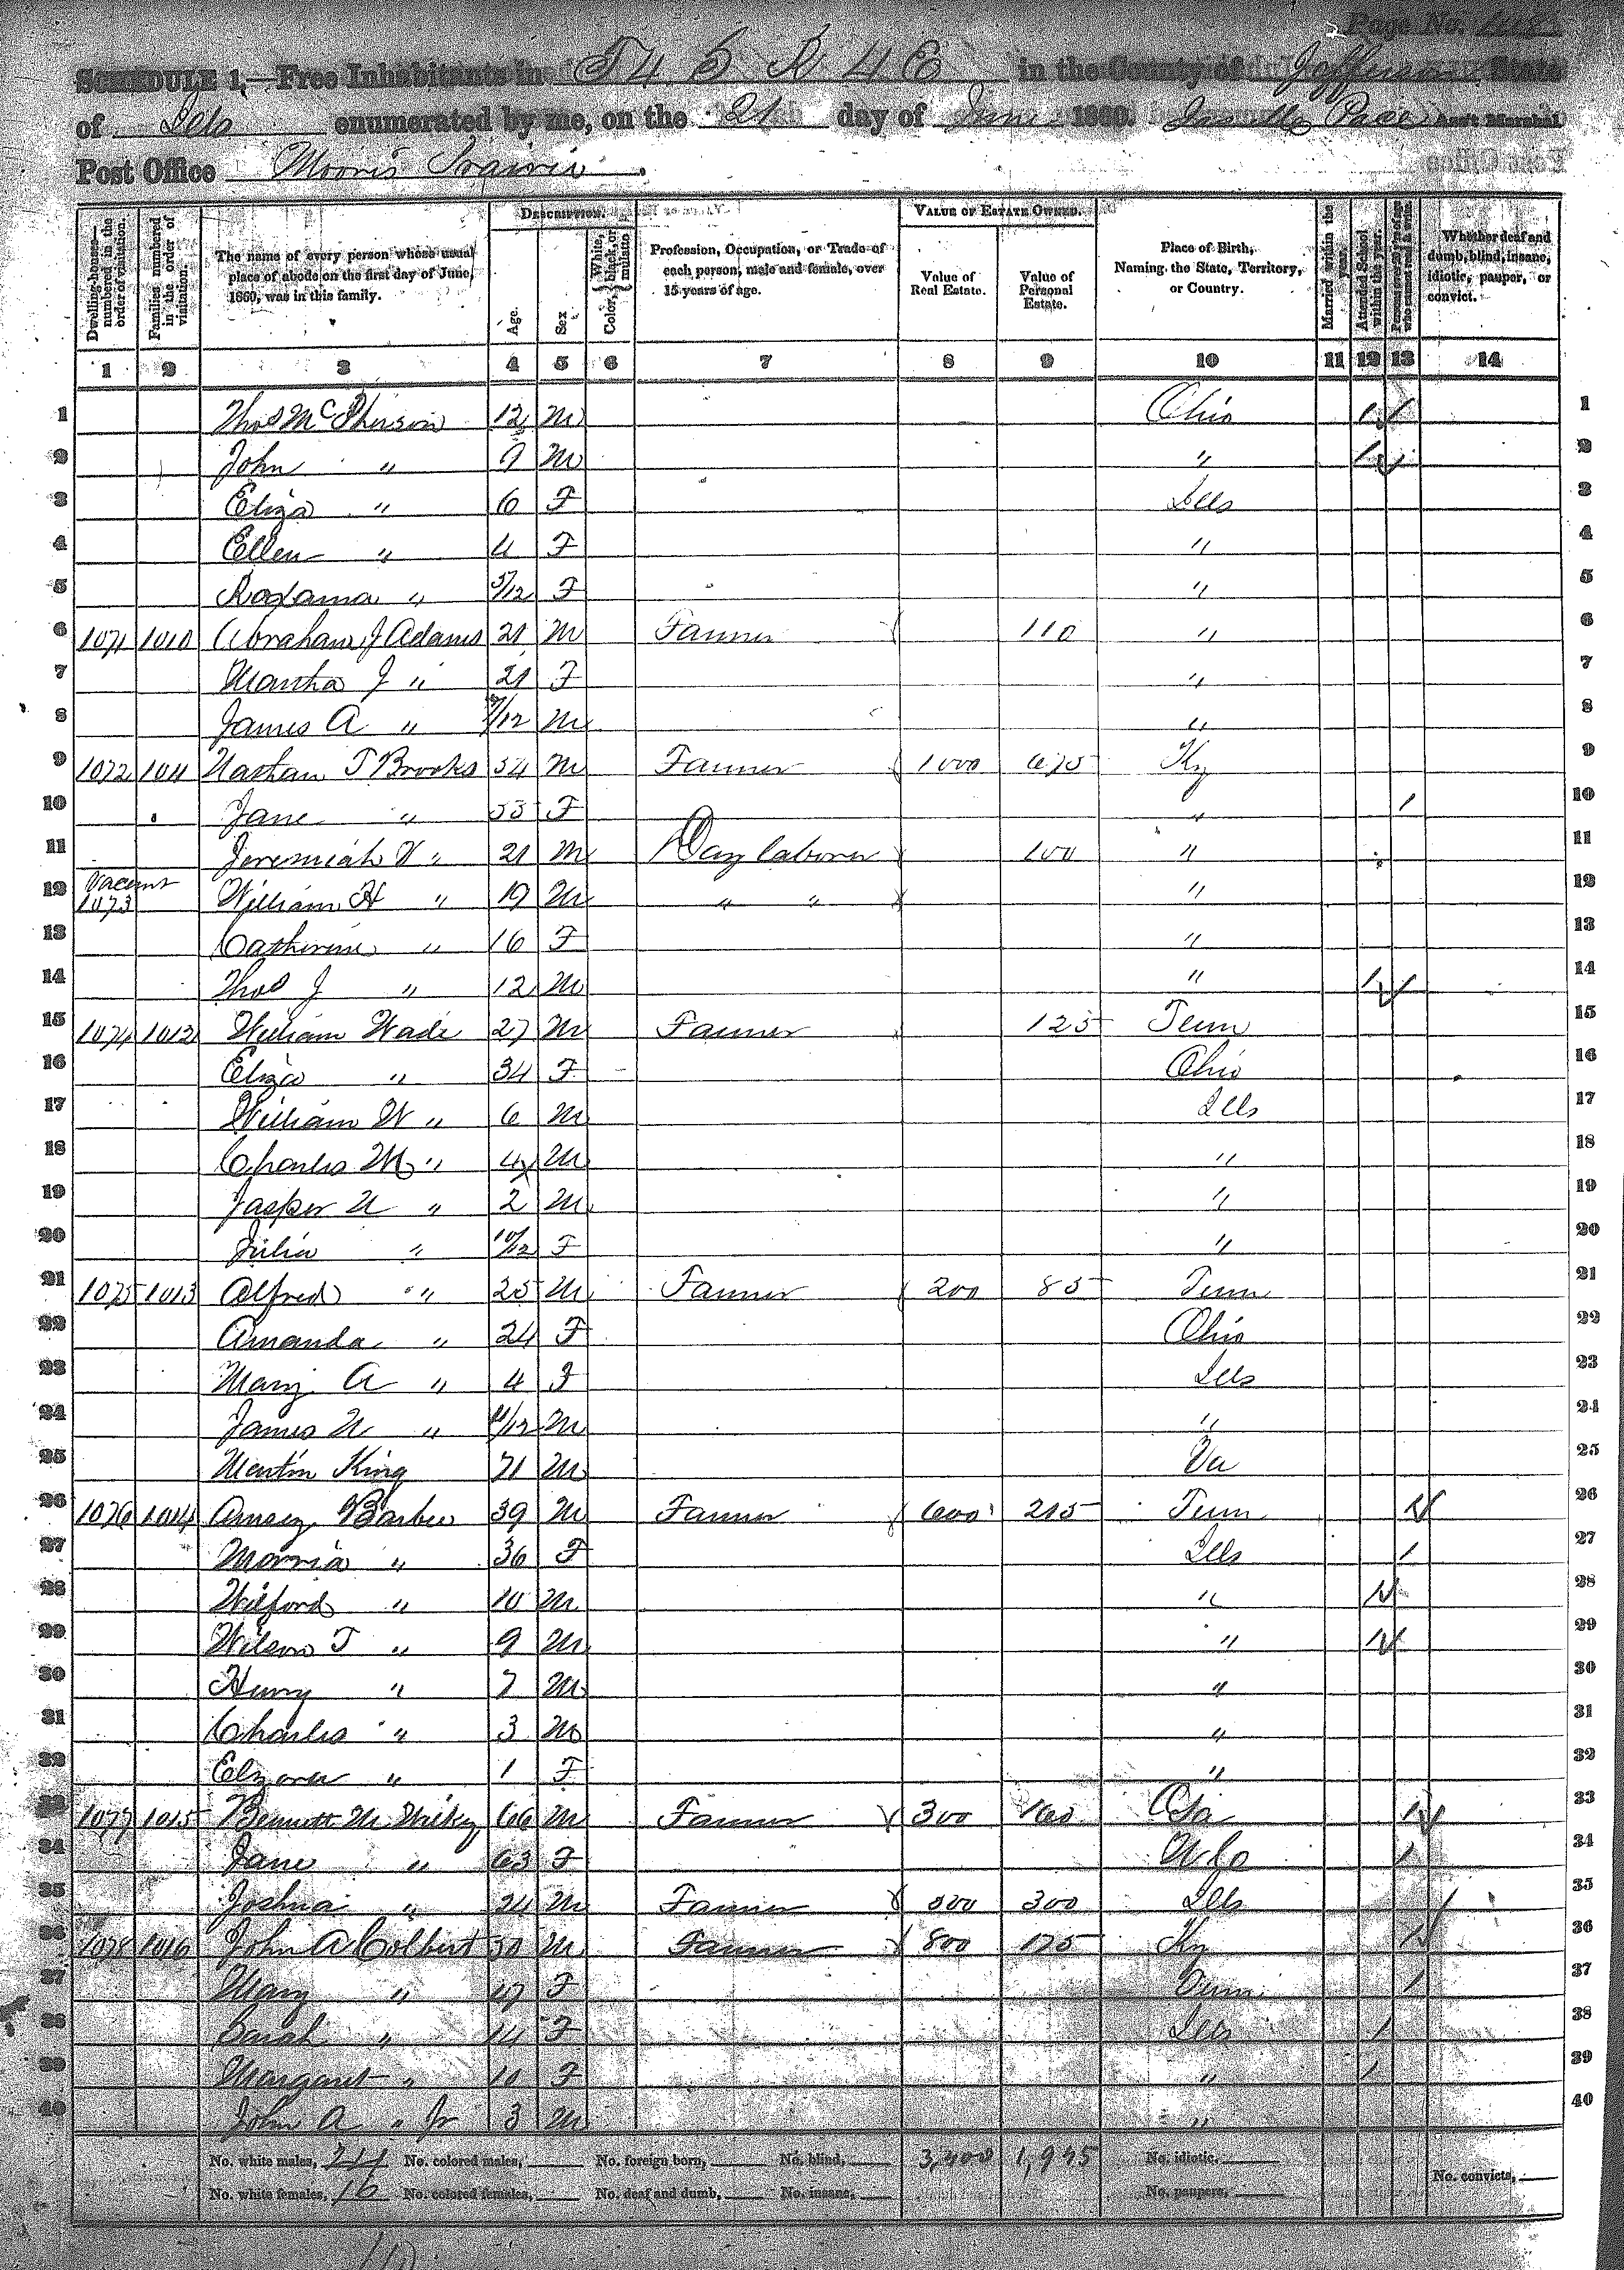 Page No.
SCHEDULE 1.—Free Inhabitants in T 4 S R 4 E in the County of Jefferson State
of Ills enumerated by me, on the 21 day of June 1860. Pace Ass't Marshal.
Post Office Moores Prairie
DESCRIPTION. VALUE OF ESTATE OWNED.
Dwelling-houses—numbered in the order of visitation. Families numbered in the order of visitation. The name of every person whose usual place of abode on the first day of June, 1860, was in this family. Age. Sex Color, White, black, or mulatto Profession, Occupation, or Trade of each person, male and female, over 15 years of age. Value of Real Estate. Value of Personal Estate. Place of Birth, Naming the State, Territory, or Country. Married within the year. Attended School within the year. Persons over 20 y'rs of age who cannot read & write. Whether deaf and dumb, blind, insane, idiotic, pauper, or convict.
1 2 3 4 5 6 7 8 9 10 11 12 13 14
1 Thos McPherson 12 M Ohio 1 1
2 John " 9 M " 1 2
3 Eliza " 6 F Ills 3
4 Ellen " 4 F " 4
5 " 5/12 F " 5
6 1071 1010 Abraham J Adams 21 M Farmer 110 " 6
7 Martha J " 21 F " 7
8 James A " /12 M " 8
9 1072 1011 Nathan T Brooks 54 M Farmer 1000 675 Ky 9
10 Jane " 55 F " 1 10
11 Jeremiah V " 21 M Day laborer 100 " 11
12 Vacant 1073 William H " 19 M " " " 12
13 Catherine " 16 F " 13
14 Thos J " 12 M " 1 14
15 1074 1012 William Wade 27 M Farmer 125 Tenn 15
16 Eliza " 34 F Ohio 16
17 William W " 6 M Ills 17
18 Charles M " 4 M " 18
19 Jasper N " 2 M " 19
20 Julia " 10/12 F " 20
21 1075 1013 Alfred " 25 M Farmer 200 85 Tenn 21
22 Amanda " 24 F Ohio 22
23 Mary A " 4 F Ills 23
24 James N " /12 M " 24
25 Martin King 71 M Va 25
26 1076 1014 Barbee 39 M Farmer 600 215 Tenn 1 26
27 Morria " 36 F Ills 1 27
28 Wilford " 10 M " 1 28
29 Wilson T " 9 M " 1 29
30 Henry " 7 M " 30
31 Charles " 3 M " 31
32 Elzora " 1 F " 32
33 1077 1015 Bennett M 66 M Farmer 300 160 Ga 1 33
34 Jane " 63 F N Co 1 34
35 Joshua " 24 M Farmer 300 Ills 35
36 1078 1016 John A Colbert 50 M Farmer 800 175 Ky 1 36
37 Mary " 47 F Tenn 1 37
38 Sarah " 14 F Ills 1 38
39 Margaret " 10 F " 1 39
40 John A " Jr 3 M " 40
No. white males, 24 No. colored males, No. foreign born, No. blind, 3,400 1,945 No. idiotic,
No. white females, 16 No. colored females, No. deaf and dumb, No. insane, No. paupers, No. convicts,